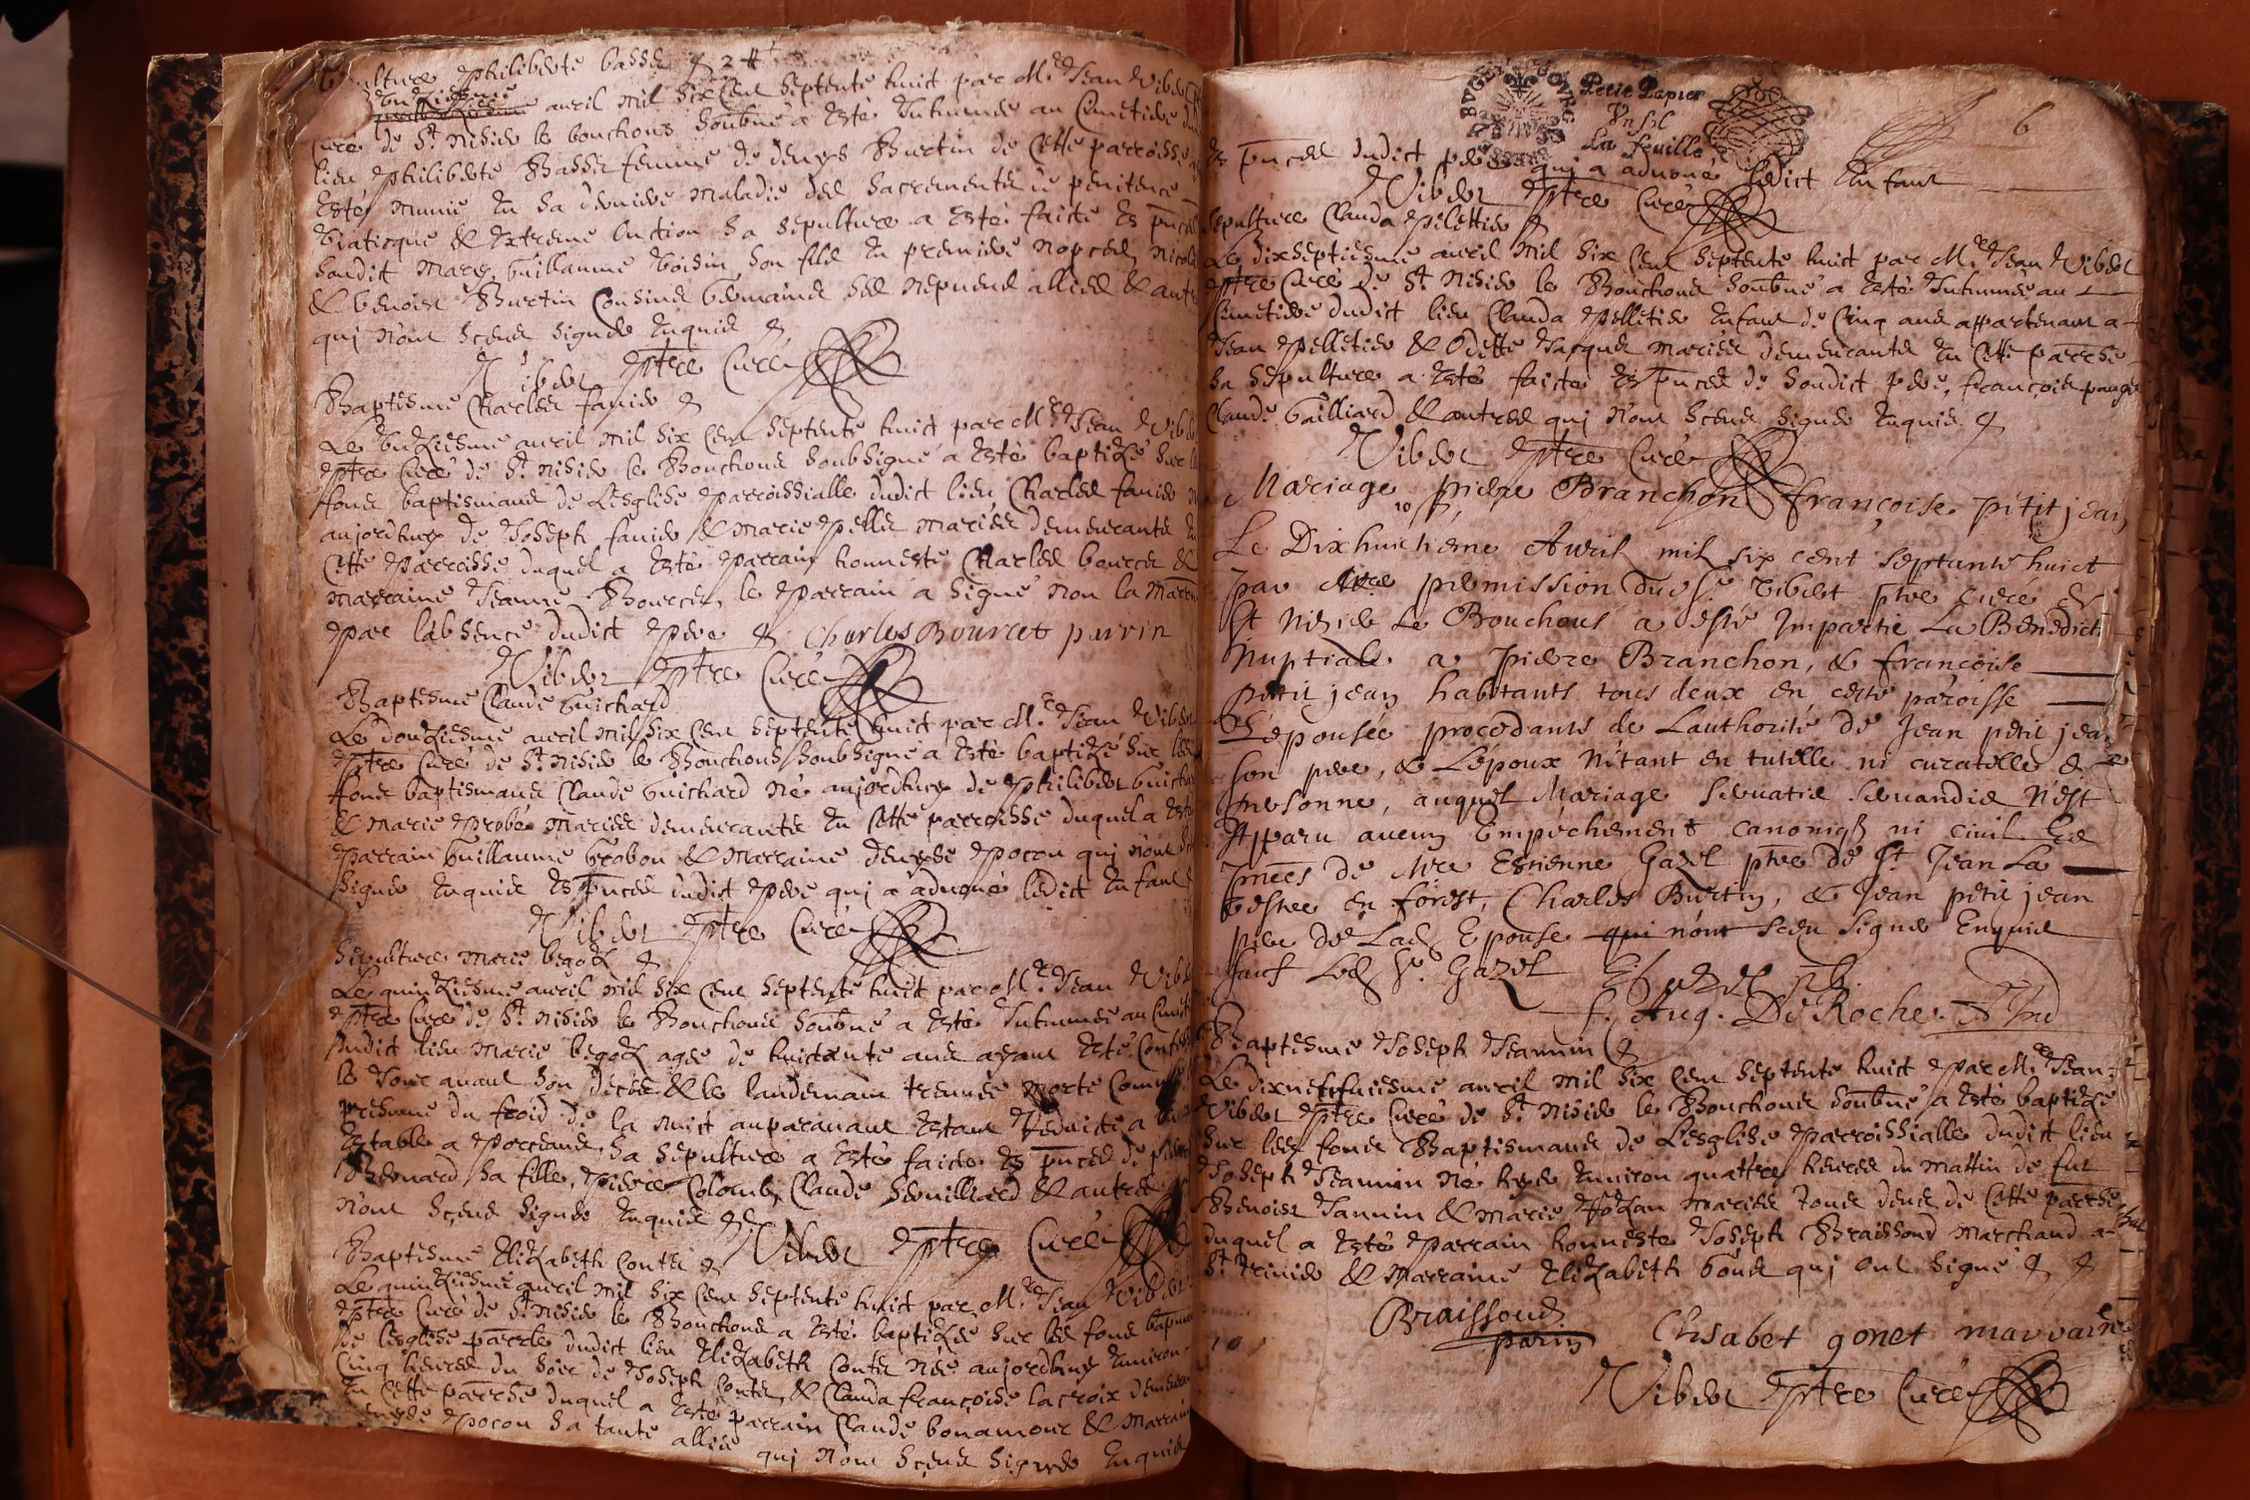 Sepulture Philiberte basse
unziesme avril mil six cent septente huict par Mre Jean Vibert
Curé de St Nisier le bouchoux soubné a esté inhumée au Cimetiere dud
lieu Philiberte Basset femme de denys Burtin de cette parroisse
Esté munie en sa derniere maladie des sacrements de penitence
Viatique & extreme onction sa sepulture a esté faicte es pnces
sondict mary, Guillaume Voisin son fils en premiere nopces, Nicolas
& benoist Burtin Cousins germains ses nepveus alliés & autres
qui n'ont sceus signer enquis
Vibert ptre Curé
Baptesme Charles favier
Le unziesme avril mil six cent septente huict par Mre Jean Vibert
ptre Curé de St Nisier le Bouchoux soubsigné a esté baptizé sur les
fons baptismaux de Lesglise parroissialle dudict lieu Charles favier
aujordhuy de Joseph favier & Marie Pellet mariés demeurants en
Cette parroisse duquel a esté parrain honneste Charles bourcet &
marraine Jeanne Bourcet, le parrain a signé non la marraine
par labsence dudict pere Charles Bourcet parrin
Vibert ptre Curé
Baptesme Claude Guichard
Le douziesme avril mil six cent septente huict par Mre Jean Vibert
ptre Curé de St Nisier le Bouchoux soubsigné a esté baptizé sur les
fons baptismaux Claude Guichard né aujordhuy de Philibert Guichard
& Marie Probet mariés demeurants en cette parroisse duquel a esté
parrain Guillaume Grobon & Marraine denyse Pocon qui n'ont sceus
signer enquis es pnces dudict pere qui a advoué ledict enfant
Vibert ptre Curé
Sepulture Marie begoz
Le quinziesme avril mil six cent septente huict par Mre Jean Vibert
ptre Curé de St Nisier le Bouchoux soubné a esté inhumée au Cimetiere
dudict lieu Marie begoz agée de huictante ans ayant esté
le jour avant son deces & le landemain treuvée morte comme
presumé du froid de la nuict auparavant estant reduicte a
estable a Porceaux, sa sepulture a esté faicte es pnces de
Bernard sa fille, Pierre Colomb, Claude & autres
n'ont sceus signer enquis
Vibert ptre Curé
Baptesme Elizabeth Contet
Le quinziesme avril mil six cent septente huict par Mre Jean Vibert
ptre Curé de St Nisier le Bouchoux a esté baptizée sur les fons
de lesglise parrle dudict lieu Elizabeth Contet née aujordhuy environ
Cinq heures du soir de Joseph Contet & Clauda françoise lacroix
en cette parroisse duquel a esté parrain Claude bonamour & Marraine
denyse Pocon sa tante alliée qui n'ont sceus signer enquis
BUGEY
Petit Papier
Un sol
La feuille
6
es pnces dudict pere qui a advoué ledict enfant
Vibert ptre Curé
Sepulture Clauda Pelettier
Le dixseptiesme avril mil six cent septente huict par Mre Jean Vibert
ptre Curé de St Nisier le Bouchoux soubné a esté inhumée au
Cimetiere dudict lieu Clauda Pelletier enfant de Cinq ans appartenant a
Jean Pelletier & Odette Jacquet mariés demeurants en cette parrsse
sa sepulture a esté faicte es pnces de sondict pere, françois
Claude Gailliard & autres qui n'ont sceus signer enquis
Vibert ptre Curé
Mariage pierre Branchon & françoise petitjean
Le Dixhuictieme Avril mil six cent septante huict
par permission du Sr Vibert ptre curé de
St Nizier Le Bouchoux a esté Impartie La Benedict
Nuptiale a pierre Branchon, & françoise
petit jean habitants tous deux en ceste paroisse
L'épousée procedants de Lauthorité de Jean petit jean
son pere, & Lépoux nétant en tutelle ni curatelle de
personne, auquel Mariage servatis servandis n'est
Apparu aucun Empechement canonicq ni civil Es
pnces de Mre Estienne Gazel ptre de St Jean La
vestre en forest, Charles Burtin, & Jean petit jean
pere de Lad Epouse qui n'ont sceu signer Enquis
sauf Led Sr Gazel
f. Aug. De Roche.
Baptesme Joseph Jeannin
Le dixneufviesme avril mil six cent septente huict par Mre Jean
Vibert ptre Curé de St Nisier le Bouchoux soubné a esté baptizé
sur les fons Baptismaux de Lesglise parroissialle dudict lieu
Joseph Jeannin né hyer environ quattre heures du mattin de
Benoist Jannin & Marie mariés tous deux de cette parrsse
duquel a esté parrain honneste Joseph Braissoud Marchand a
St Trivier & Marraine Elizabeth Gonet qui ont signé
Braissoud
parin
Elisabet gonet marraine
Vibert ptre Curé